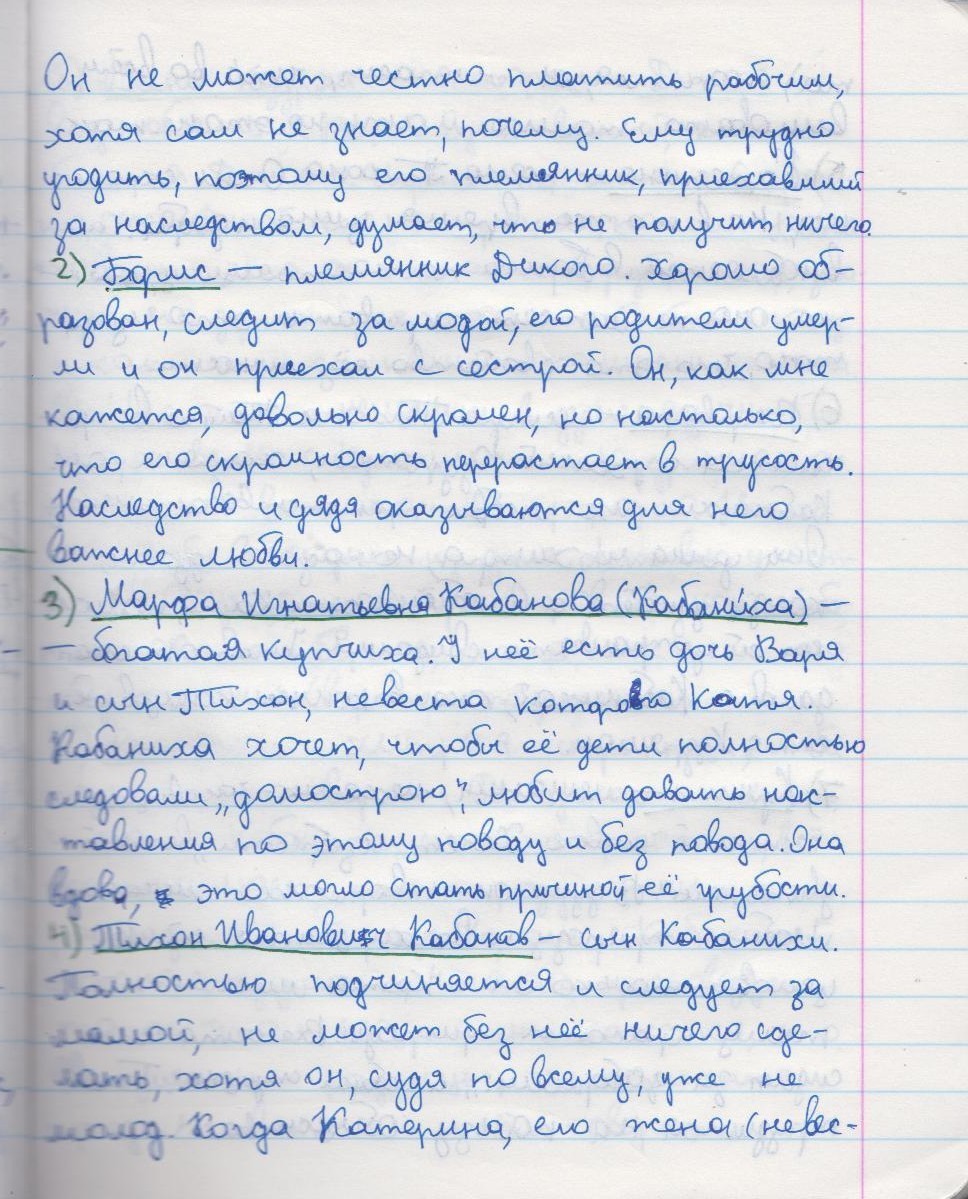 Он не может честно платить рабочим,
хотя сам не знает, почему. Ему трудно
угодить, поэтому его племянник, приехавший
за наследством, думает, что не получит ничего.
2) Борис — племянник Дикого. Хорошо об-
разован, следит за модой, его родители умер-
ли и он приехал с сестрой. Он, как мне
кажется, довольно скромен, но настолько,
что его скромность перерастает в трусость.
Наследство и дядя оказываются для него
важнее любви.
3) Марфа Игнатьевна Кабанова (Кабани́ха) —
— богатая купчиха. У неё есть дочь Варя
и сын Тихон, невеста которого Катя.
Кабаниха хочет, чтобы её дети полностью
следовали „домострою“, любит давать нас-
тавления по этому поводу и без повода. Она
вдова, это могло стать причиной её грубости.
4) Тихон Иванович Кабанов — сын Кабанихи.
Полностью подчиняется и следует за
мамой, не может без неё ничего сде-
лать, хотя он, судя по всему, уже не
молод. Когда Катерина, его жена (невес-